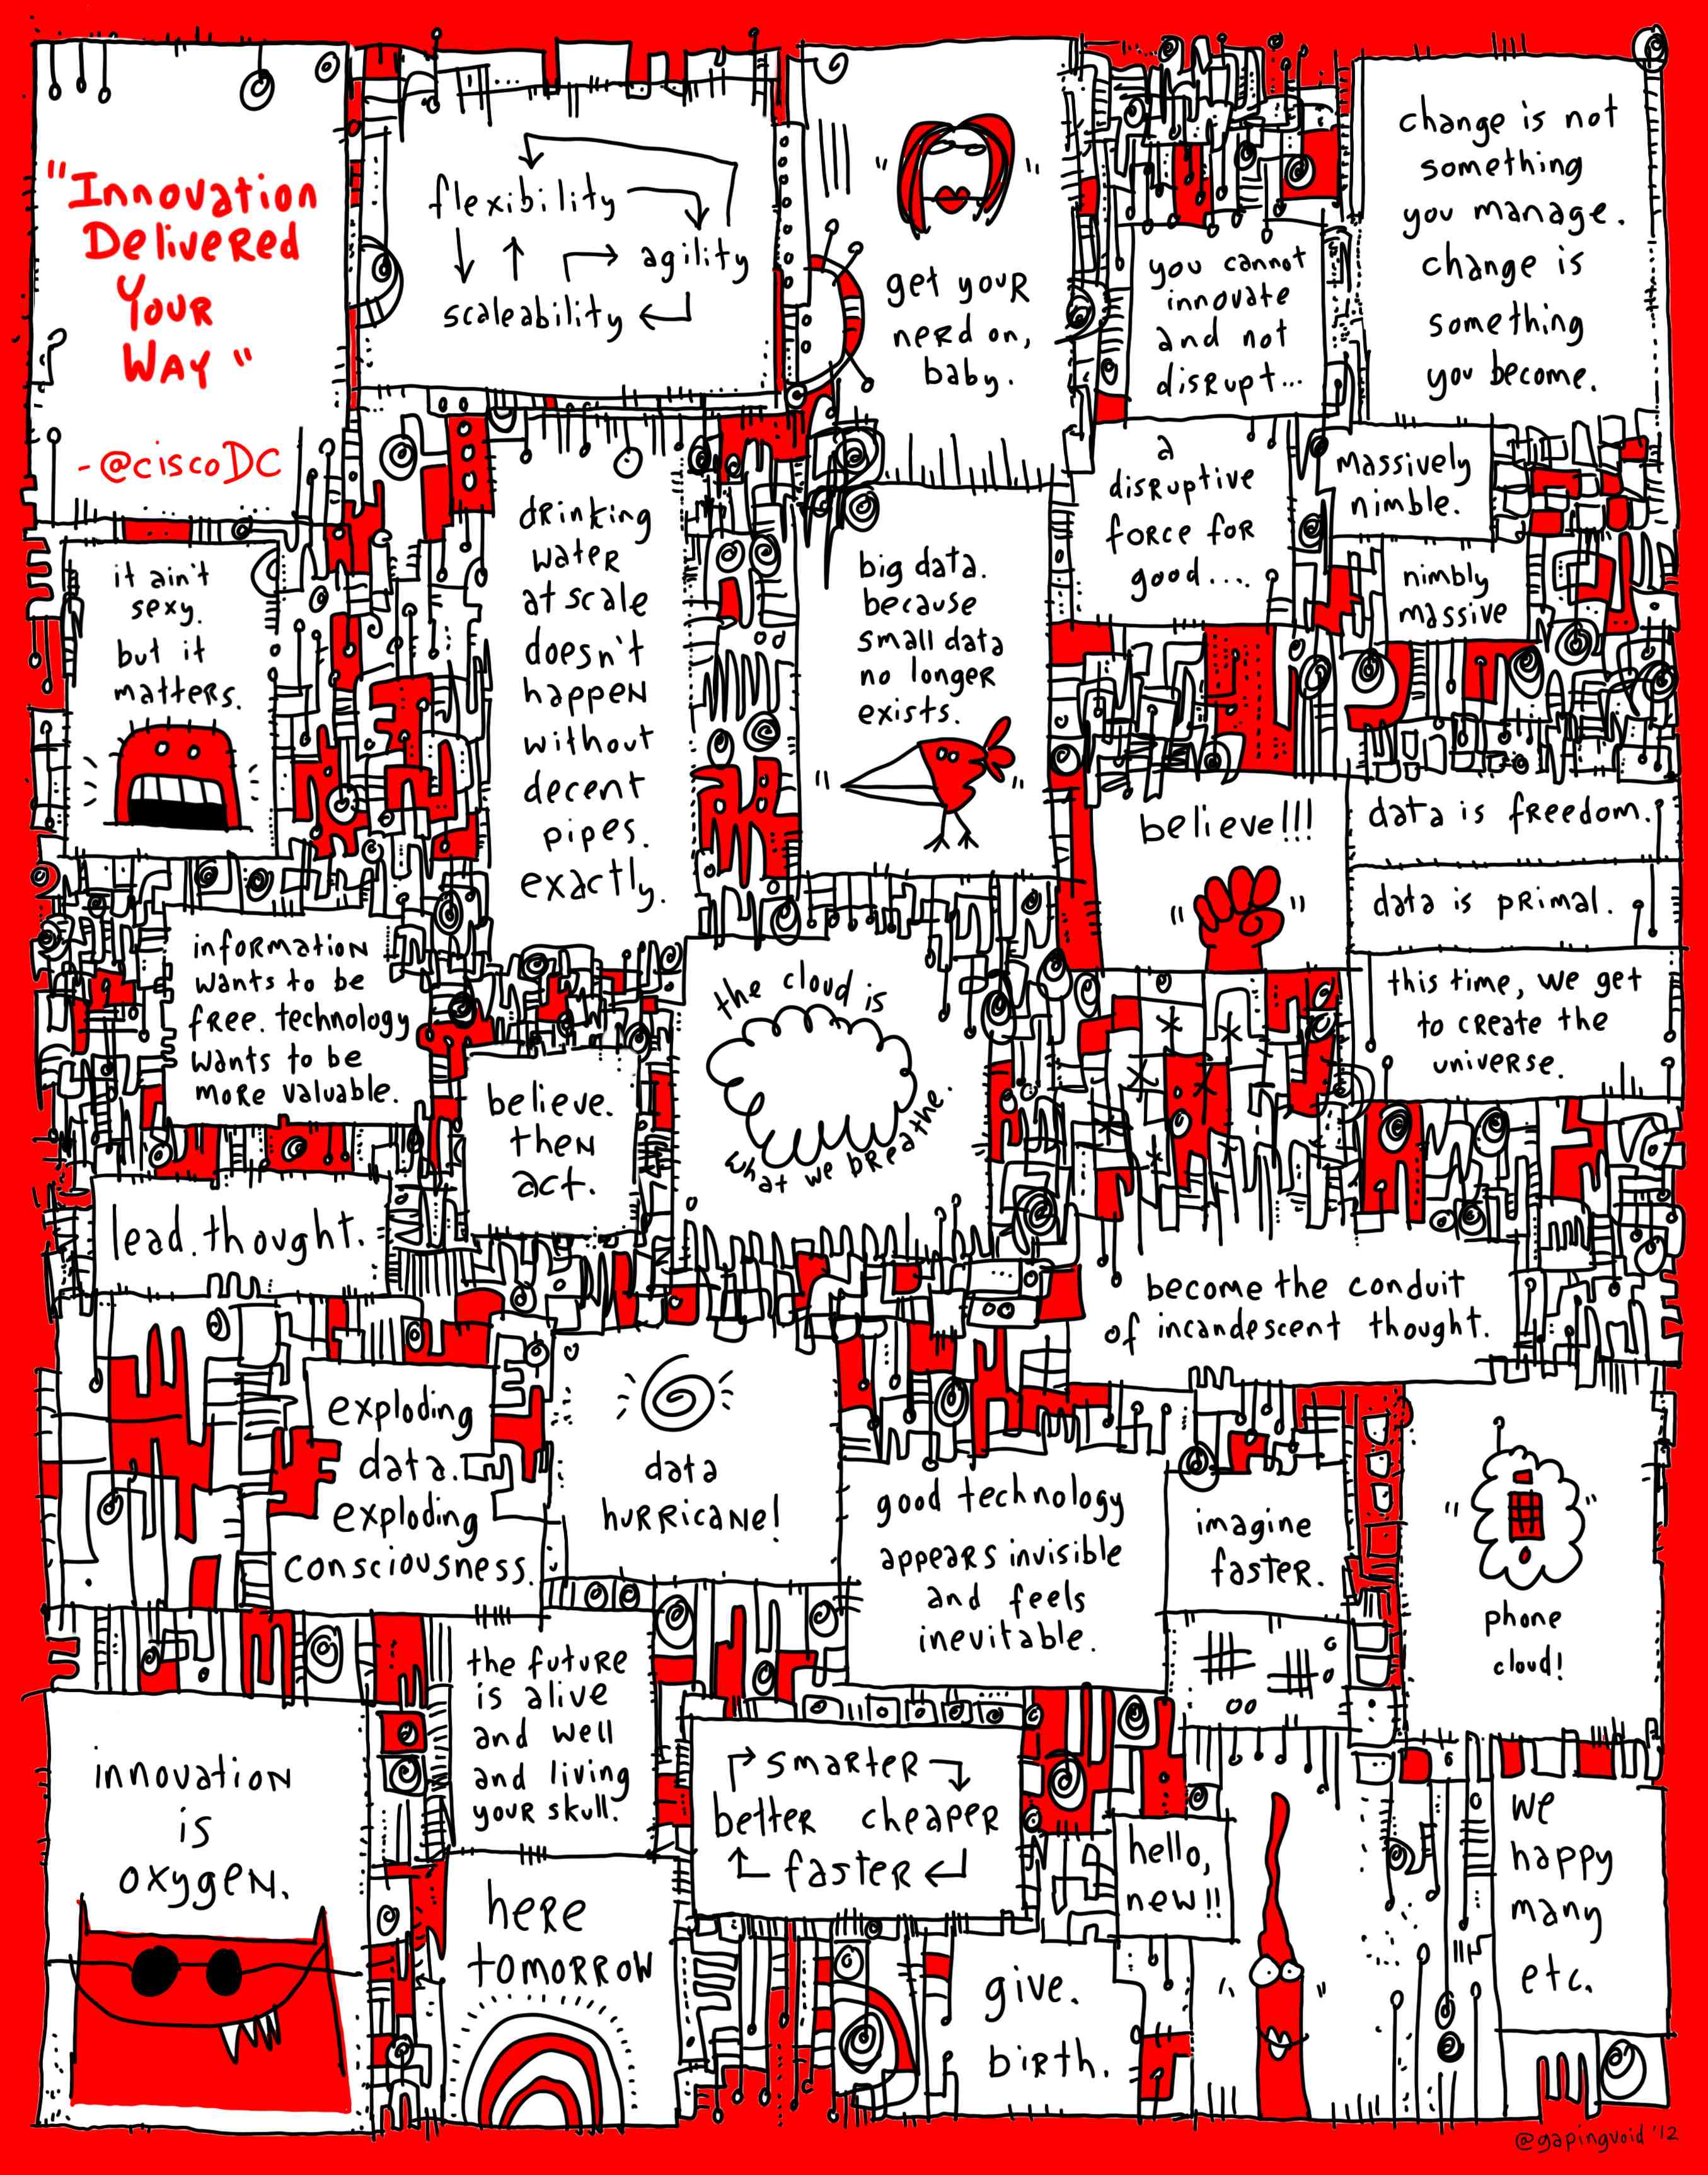 "Innovation
Delivered
Your
Way"
-@ciscoDC
flexibility
agility
scaleability
get your
nerd on,
baby.
you cannot
innovate
and not
disrupt...
change is not
something
you manage.
change is
something
you become.
it ain't
sexy.
but it
matters.
drinking
water
at scale
doesn't
happen
without
decent
pipes.
exactly.
big data.
because
small data
no longer
exists.
a
disruptive
force for
good....
massively
nimble.
nimbly
massive
believe!!!
data is freedom.
data is primal.
this time, we get
to create the
universe.
information
wants to be
free. technology
wants to be
more valuable.
believe.
then
act.
the cloud is
what we breathe.
lead.thought.
become the conduit
of incandescent thought.
exploding
data.
exploding
consciousness.
data
hurricane!
good technology
appears invisible
and feels
inevitable.
imagine
faster.
phone
cloud!
innovation
is
oxygen.
the future
is alive
and well
and living
your skull.
smarter
better cheaper
faster
hello,
new!!
we
happy
many
etc.
here
tomorrow
give.
birth.
@gapingvoid '12